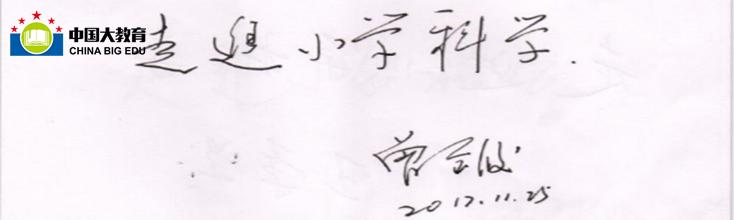 中国大教育
CHINA BIG EDU
走进小学科学.
曾宝俊
2012.11.25